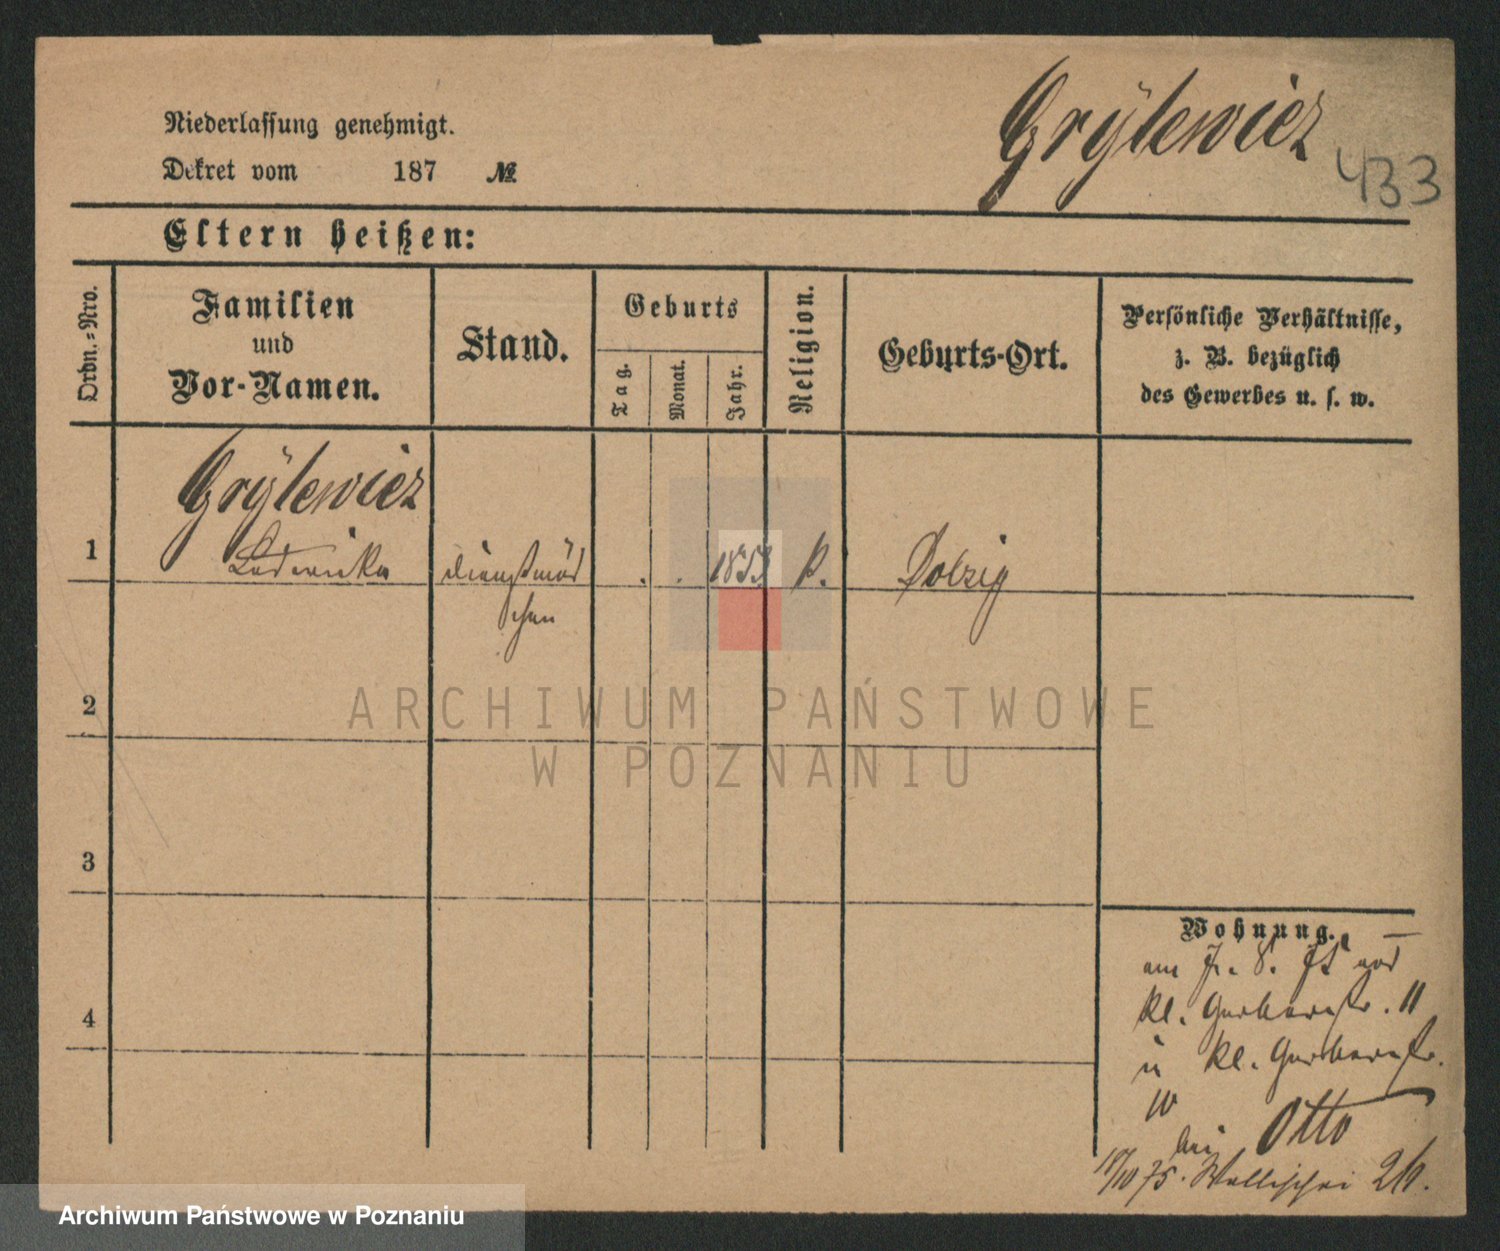 Grÿlewicz
433
Niederlassung genehmigt.
Dekret vom 187 №
Eltern heißen:
Ordn.-Nro.
Familien
und
Vor-Namen.
Stand.
Geburts
Tag.
Monat.
Jahr.
Religion.
Geburts-Ort.
Persönliche Verhältnisse,
z. B. bezüglich
des Gewerbes u. s. w.
Grÿlewicz
1 Ludowika Dienstmäd . . 185 k. Dolzig
chen
2
3
4
Wohnung.
am
kl. Gerberstr. 11
u kl. Gerberstr.
10
bei Otto
19/10 75. Wallischei
ARCHIWUM PAŃSTWOWE
W POZNANIU
Archiwum Państwowe w Poznaniu